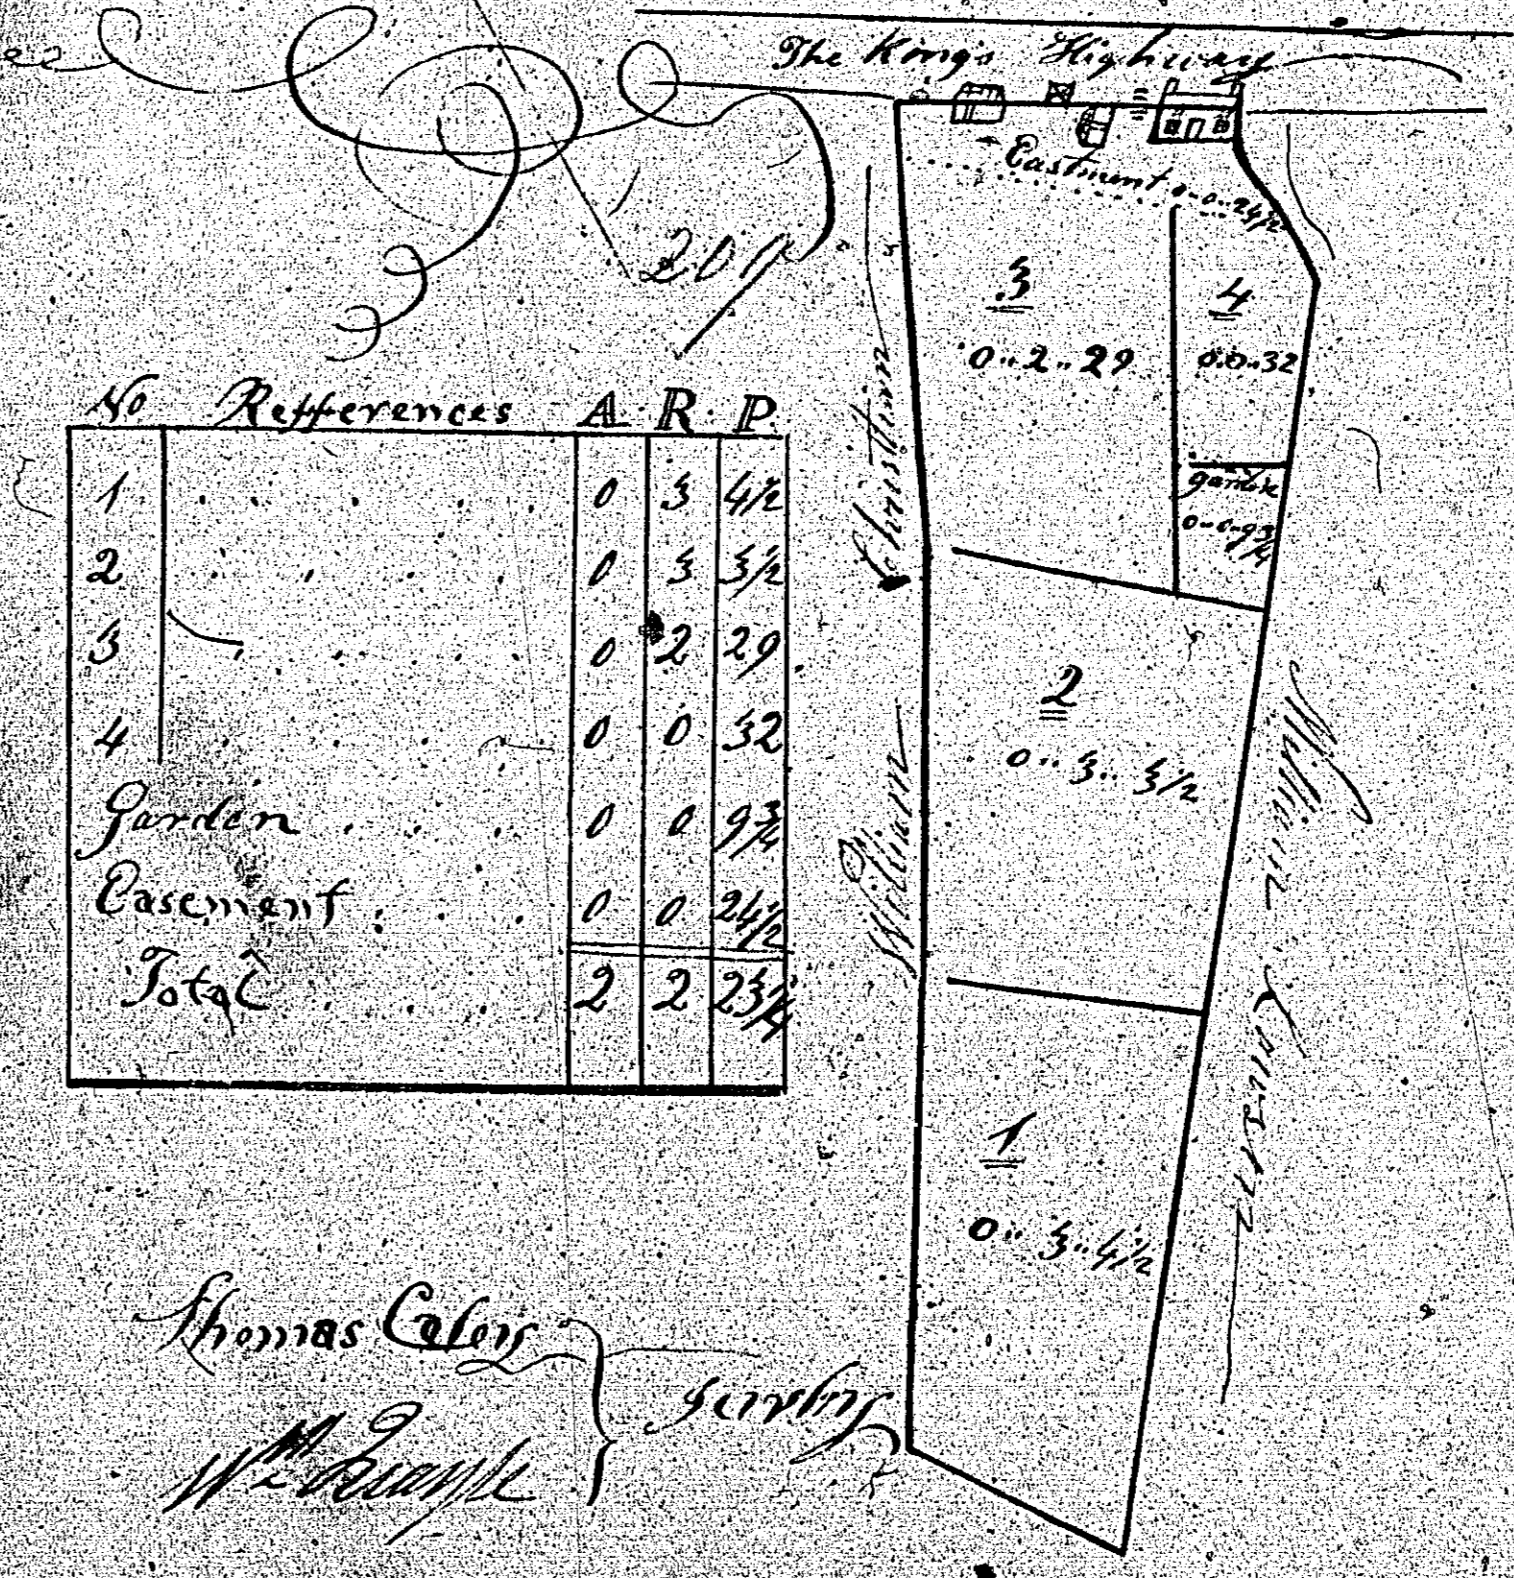 The Kings Highway
Eastment 0..0..24 1/2
201
3
0..2..29
4
0.0..32
garden
0..0..9 3/4
2
0..3..3 1/2
1
0..3..4 1/2
William Christian
William
No Refferences A. R. P.
1 . . . . 0 3 4 1/2
2 . . . . 0 3 3 1/2
3 . . . . 0 2 29
4 . . . . 0 0 32
Garden . . . 0 0 9 3/4
Easement . . 0 0 24 1/2
Total . . . 2 2 23 1/4
Thomas
Wm Quayle